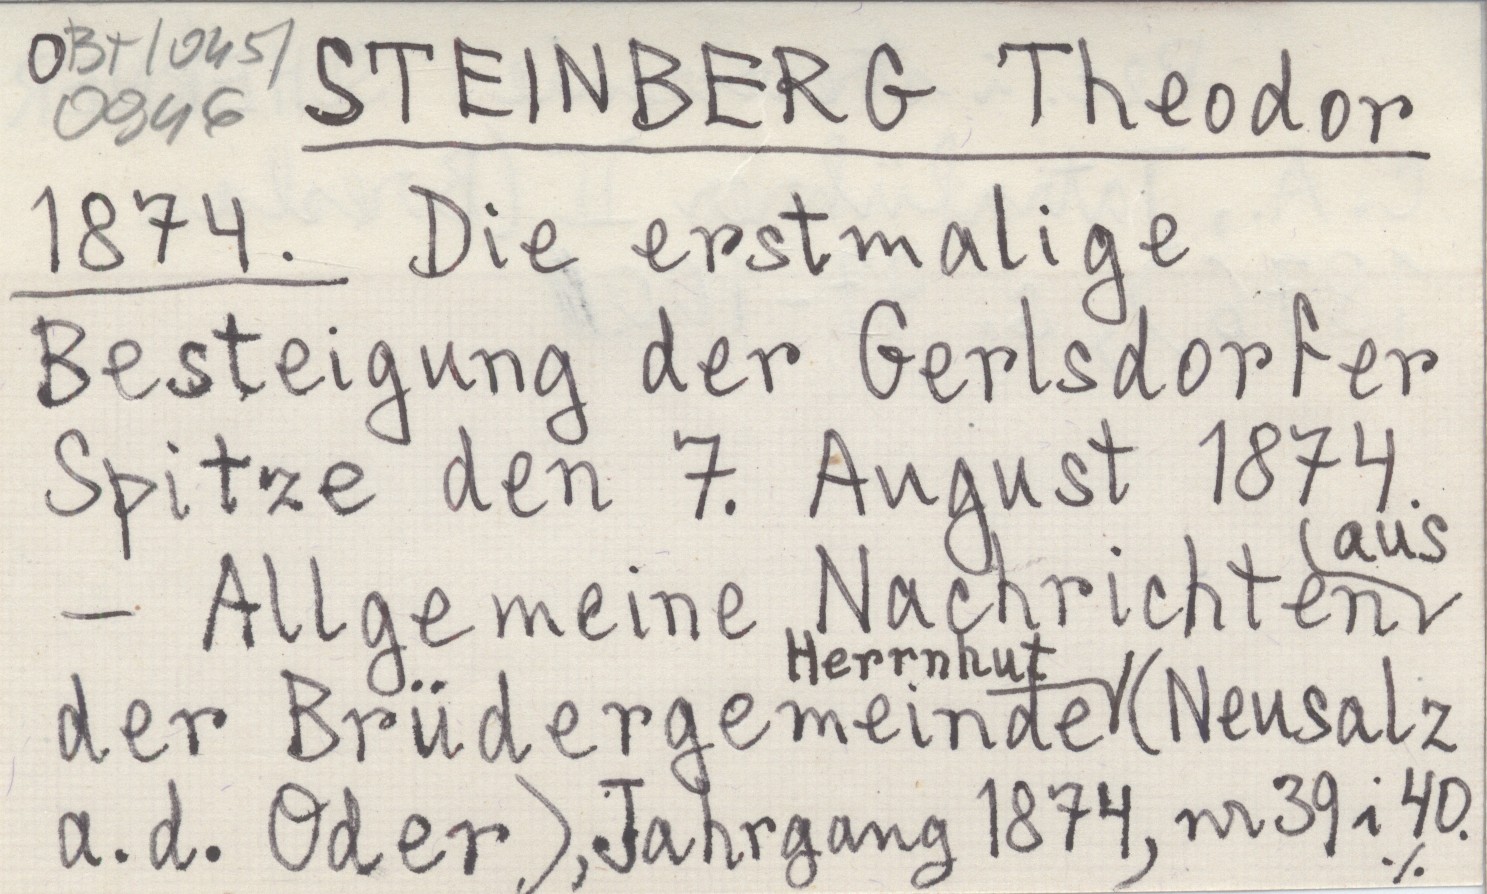 OBT/045/
0946
STEINBERG Theodor
1874. Die erstmalige
Besteigung der Gerlsdorfer
Spitze den 7. August 1874.
– Allgemeine Nachrichten aus
der Brüdergemeinde Herrnhut (Neusalz
a.d. Oder), Jahrgang 1874, nr 39 i 40.
./.